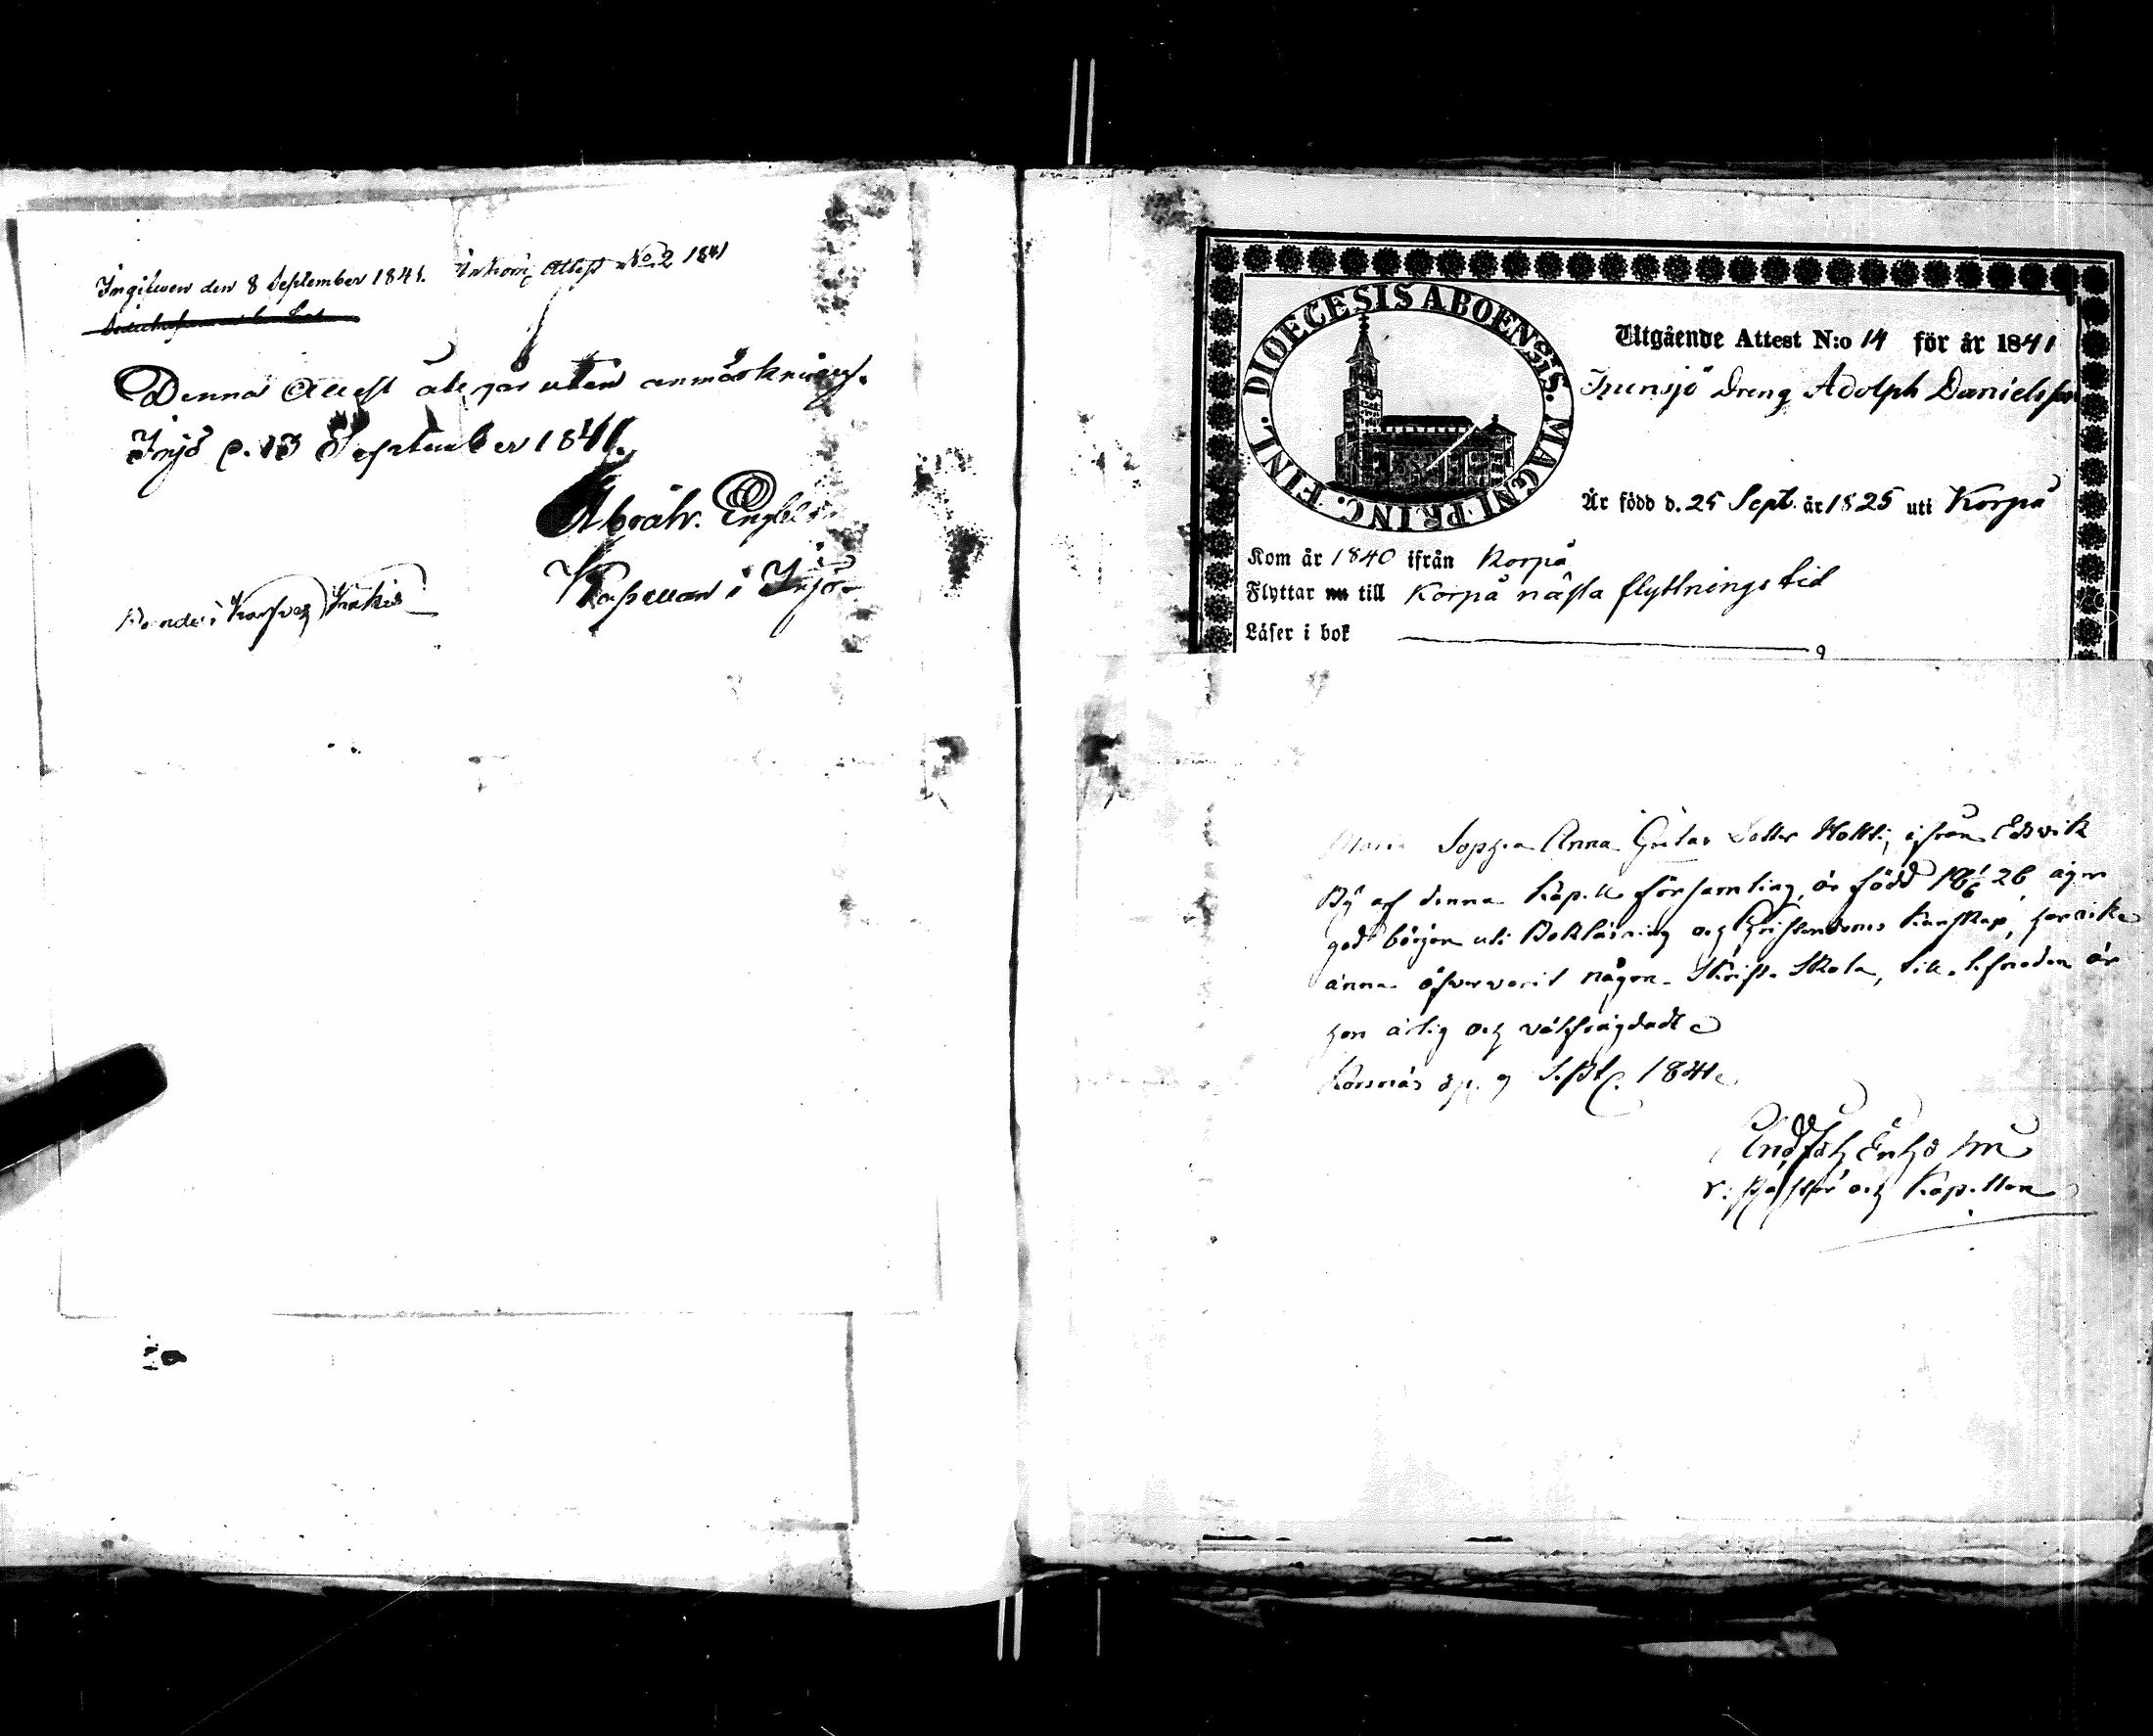 Ingifwen den 8 September 1841. Inkom Attest No 2 1841
Denna Attest återgår utan anmärkning.
Iniö d. 13 September 1841.
Abrah. Englbl
Kapellan i Iniö
DIOECESIS ABOENSIS. MAGNI PRINC. FINL.
Utgående Attest N:o 14 för år 1841
Dreng Adolph Danielsson
Är född d. 25 Sept. år 1825 uti Korpå
Kom år 1840 ifrån Korpå
Flyttar nu till Korpå nästa flyttnings tid
Läser i bok
Maria Sophia Anna Gretas Dotter Holtti, ifrån Edsvik
By af denna Kapell församling, är född 18 1/6 26 äger
god början uti Bokläsning och Christendoms Kunskap, har icke
ännu öfvervarit någon Skrift-Skola, till lefnaden är
hon ärlig och välfrägdad
Korsnäs d. 9 Sept. 1841
v: Pastor och Kapellan